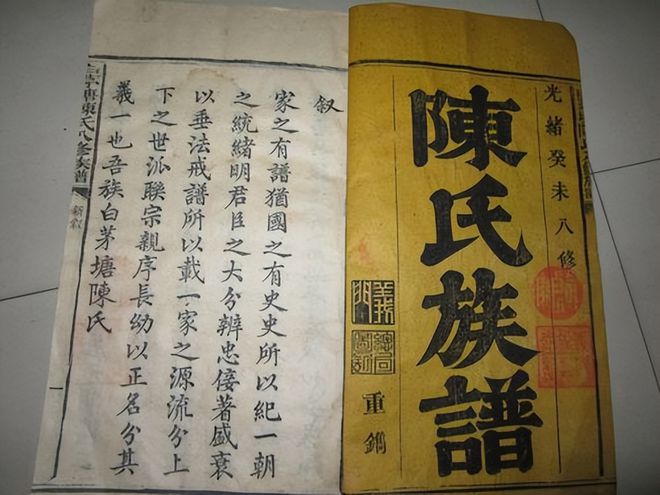 光緒癸未八修
陳氏族譜
義門
重鐫
叙
家之有譜猶國之有史史所以紀一朝
之統緒明君臣之大分辨忠佞著盛衰
以垂法戒譜所以載一家之源流分上
下之世派聯宗親序長幼以正名分其
義一也吾族白茅塘陳氏
塘陳氏八修族譜
新叙